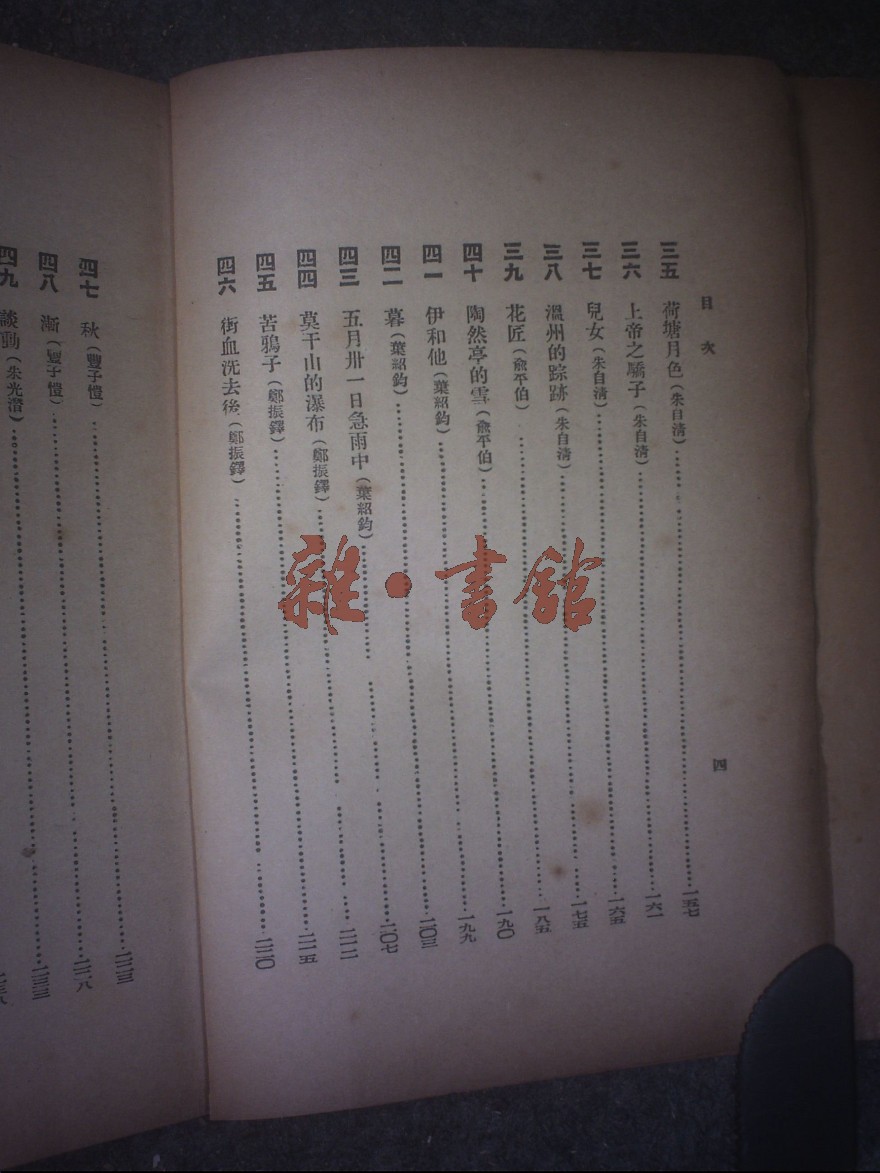 目次
三五 荷塘月色(朱自清)……一五七
三六 上帝之驕子(朱自清)……一六一
三七 兒女(朱自清)……一六五
三八 溫州的踪跡(朱自清)……一七五
三九 花匠(俞平伯)……一八五
四十 陶然亭的雪(俞平伯)……一九〇
四一 伊和他(葉紹鈞)……一九九
四二 暮(葉紹鈞)……二〇三
四三 五月卅一日急雨中(葉紹鈞)……二〇七
四四 莫干山的瀑布(鄭振鐸)……二一二
四五 苦鴉子(鄭振鐸)……二一五
四六 街血洗去後(鄭振鐸)……二二〇
四
四七 秋(豐子愷)……二二三
四八 漸(豐子愷)……二二八
四九 談動(朱光潛)……二三三
雜·書館